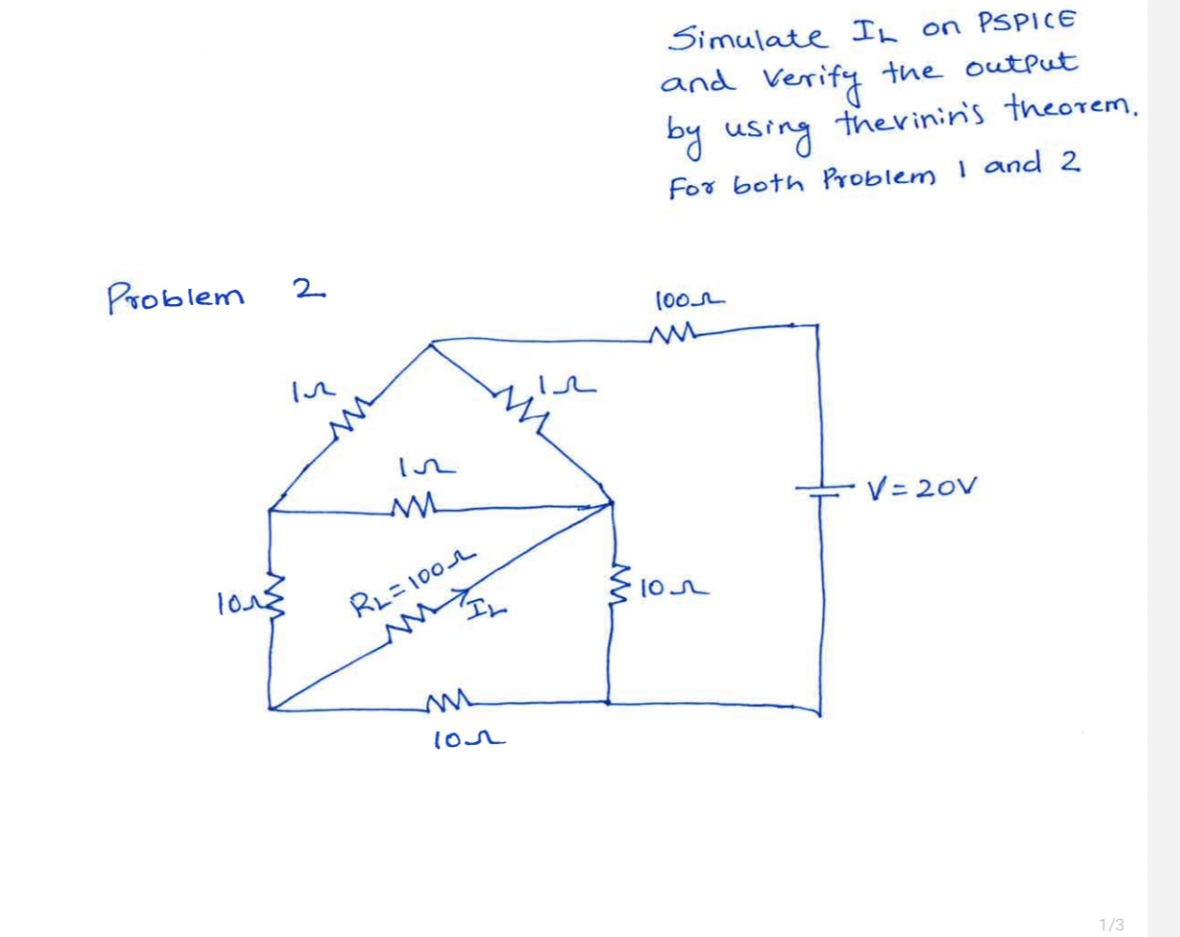 Simulate IL on PSPICE
and Verify the output
by using thevinin's theorem.
For both Problem 1 and 2
Problem 2
100Ω
1Ω
1Ω
1Ω
V=20V
RL=100Ω
10Ω
IL
10Ω
10Ω
1/3